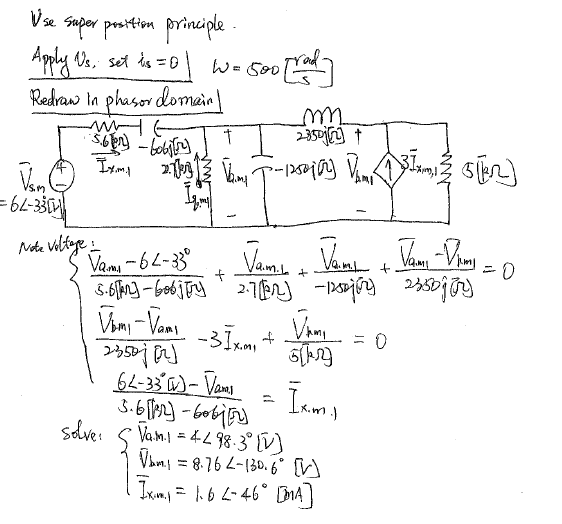 Use super position principle.
Apply Vs, set is = 0 | ω = 500 [rad/s]
Redraw in phasor domain |
5.6[kΩ] -606j[Ω] 2350j[Ω]
Īx.m.1 2.7[kΩ] V̄a.m.1 -1250j[Ω] V̄b.m.1 3Īx.m.1 5[kΩ]
V̄s.m = 6∠-33°[V] Īq.m.1
Node Voltage:
(V̄a.m.1 - 6∠-33°)/(5.6[kΩ] - 606j[Ω]) + V̄a.m.1/2.7[kΩ] + V̄a.m.1/-1250j[Ω] + (V̄a.m.1 - V̄b.m.1)/2350j[Ω] = 0
(V̄b.m.1 - V̄a.m.1)/2350j[Ω] - 3Īx.m.1 + V̄b.m.1/5[kΩ] = 0
(6∠-33°[V] - V̄a.m.1)/(5.6[kΩ] - 606j[Ω]) = Īx.m.1
Solve: { V̄a.m.1 = 4∠98.3° [V]
V̄b.m.1 = 8.76∠-130.6° [V]
Īx.m.1 = 1.6∠-46° [mA]